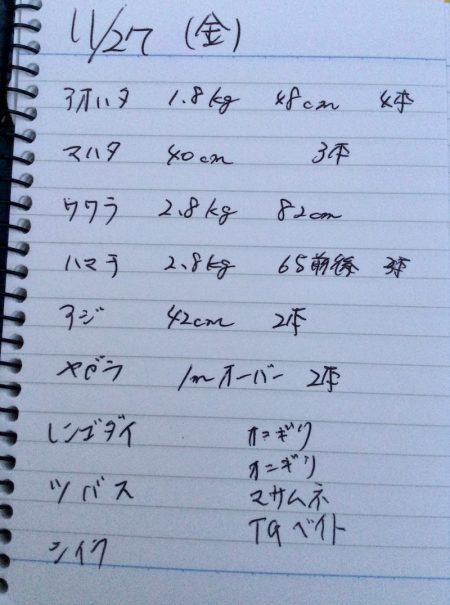 11/27 (金)
アオハタ 1.8kg 48cm 4本
マハタ 40cm 3本
サワラ 2.8kg 82cm
ハマチ 2.8kg 65前後 3本
アジ 42cm 2本
ヤガラ 1mオーバー 2本
レンコダイ オニギリ
オニギリ
ツバス マサムネ
TGベイト
シイラ